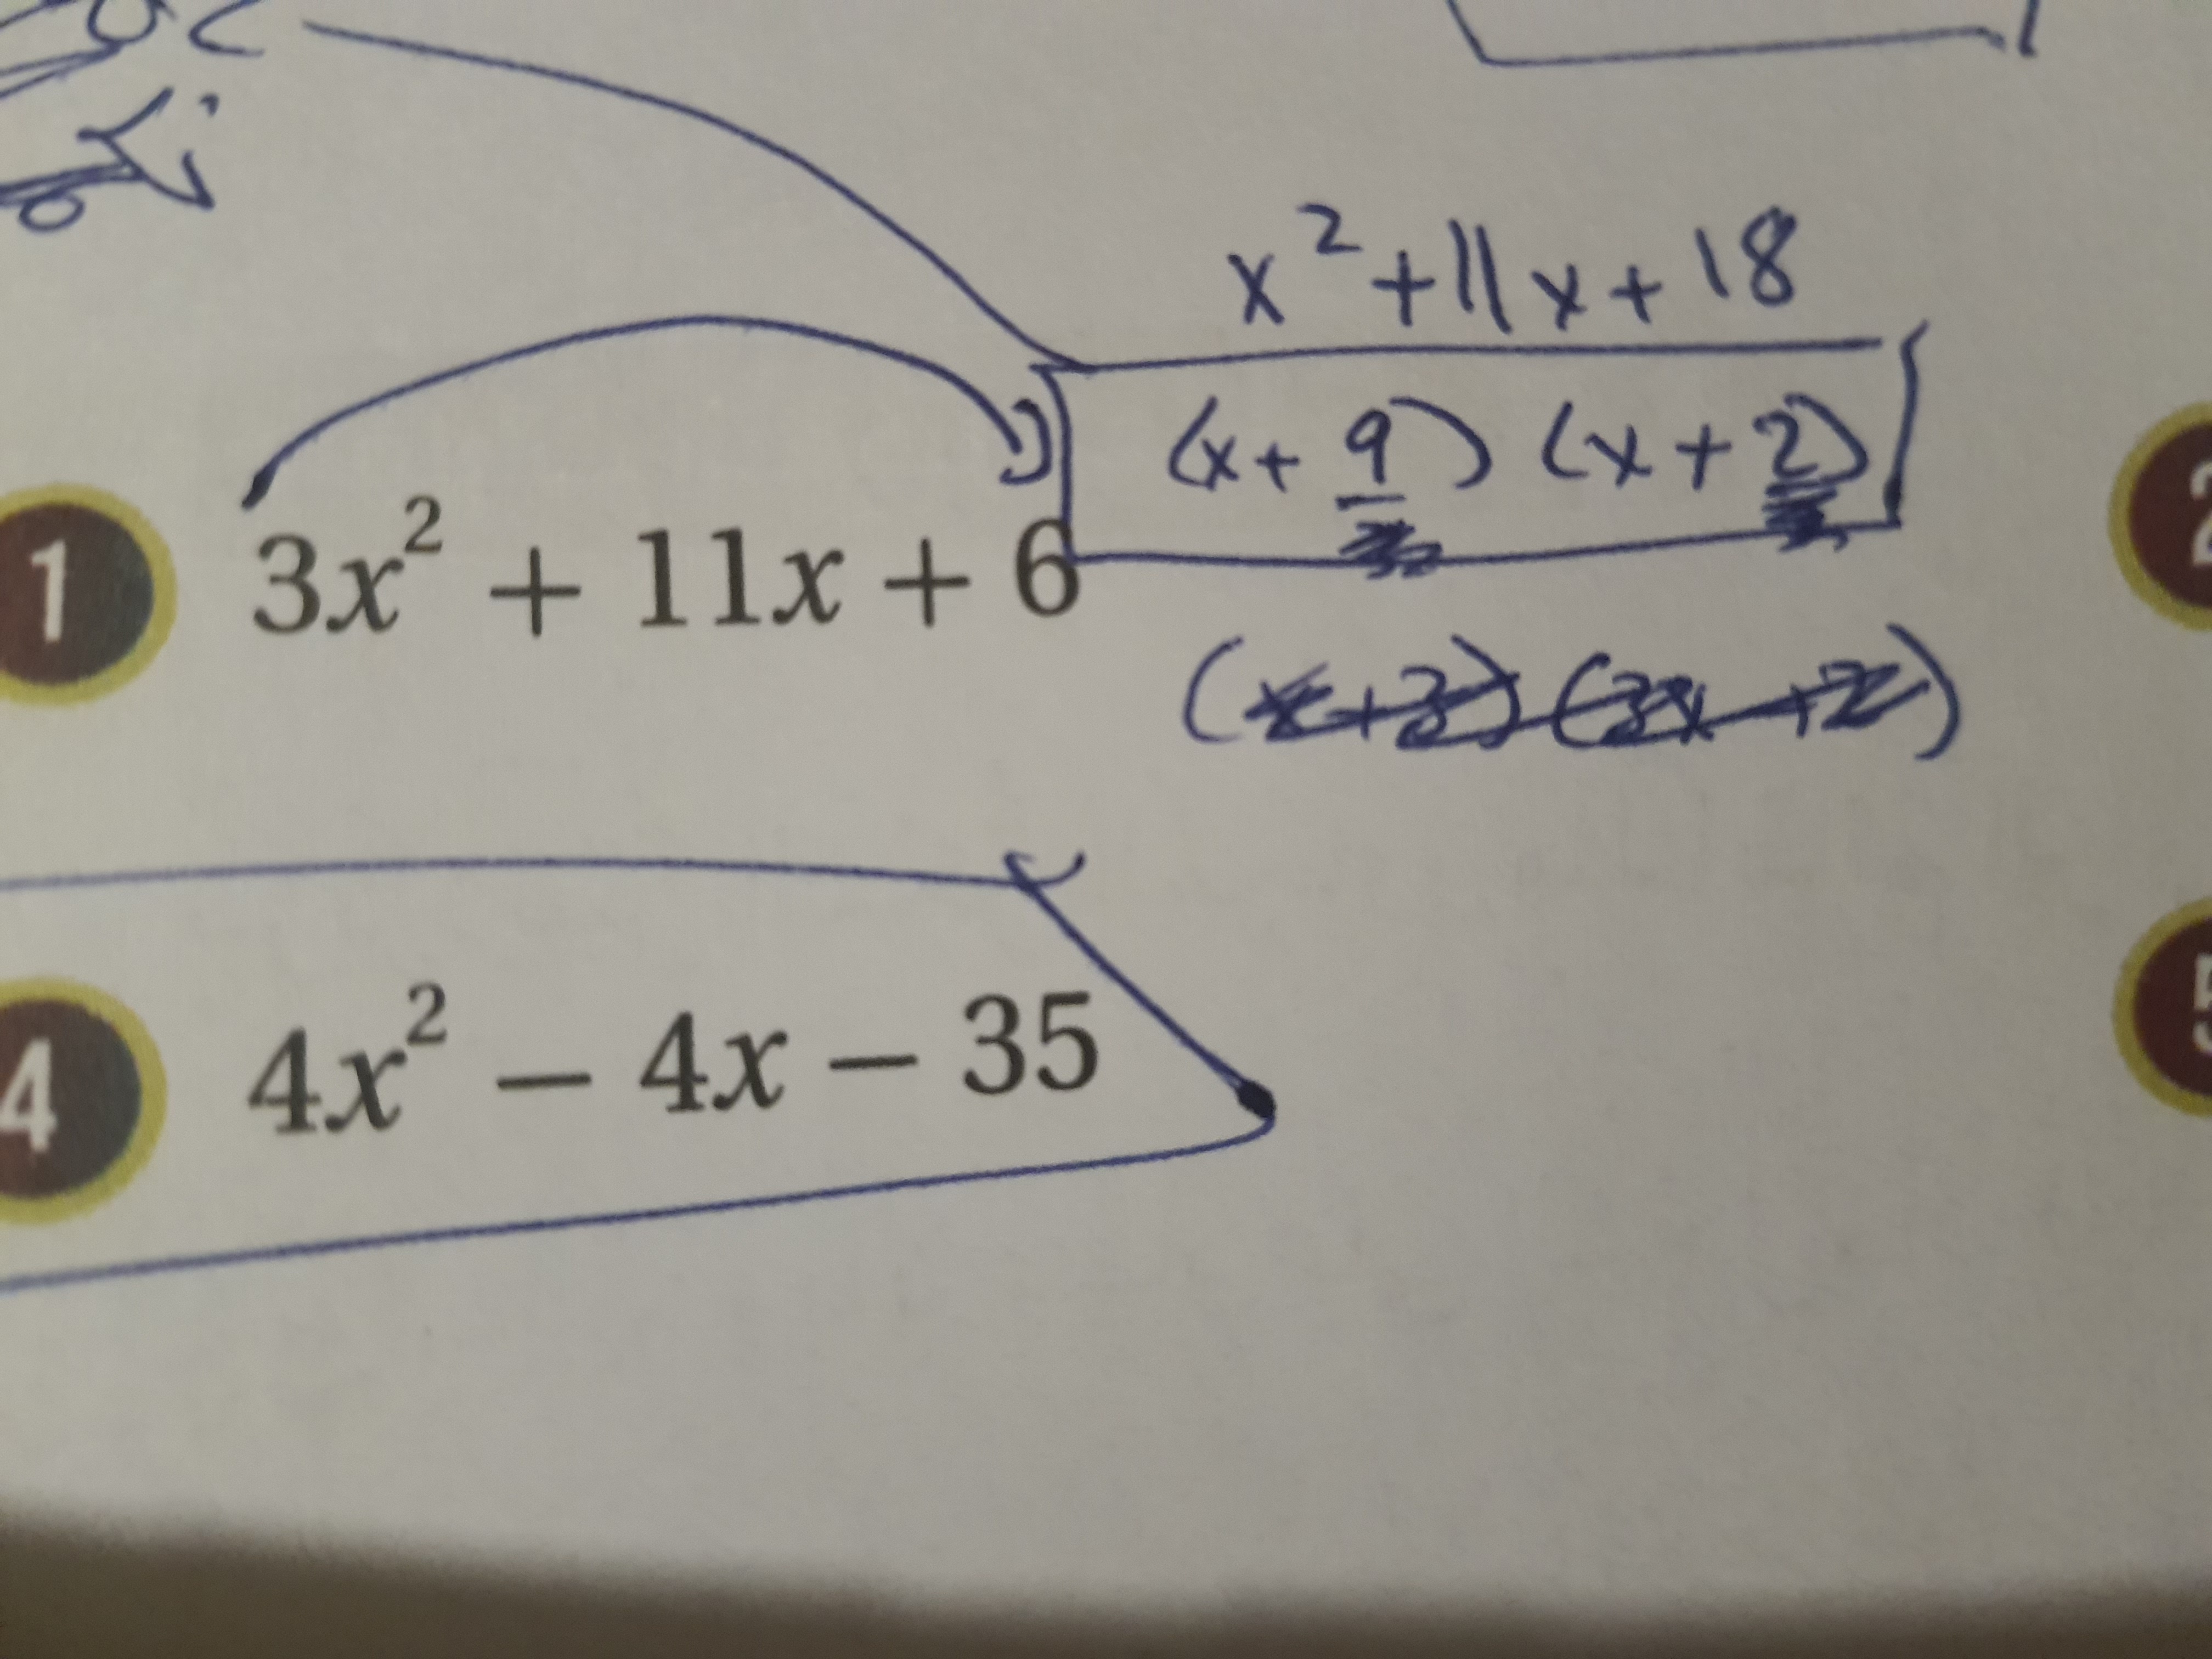 x² + 11x + 18
(x + 9) (x + 2)
1 3x² + 11x + 6
(x+3) (3x+2)
2
4 4x² − 4x − 35
5